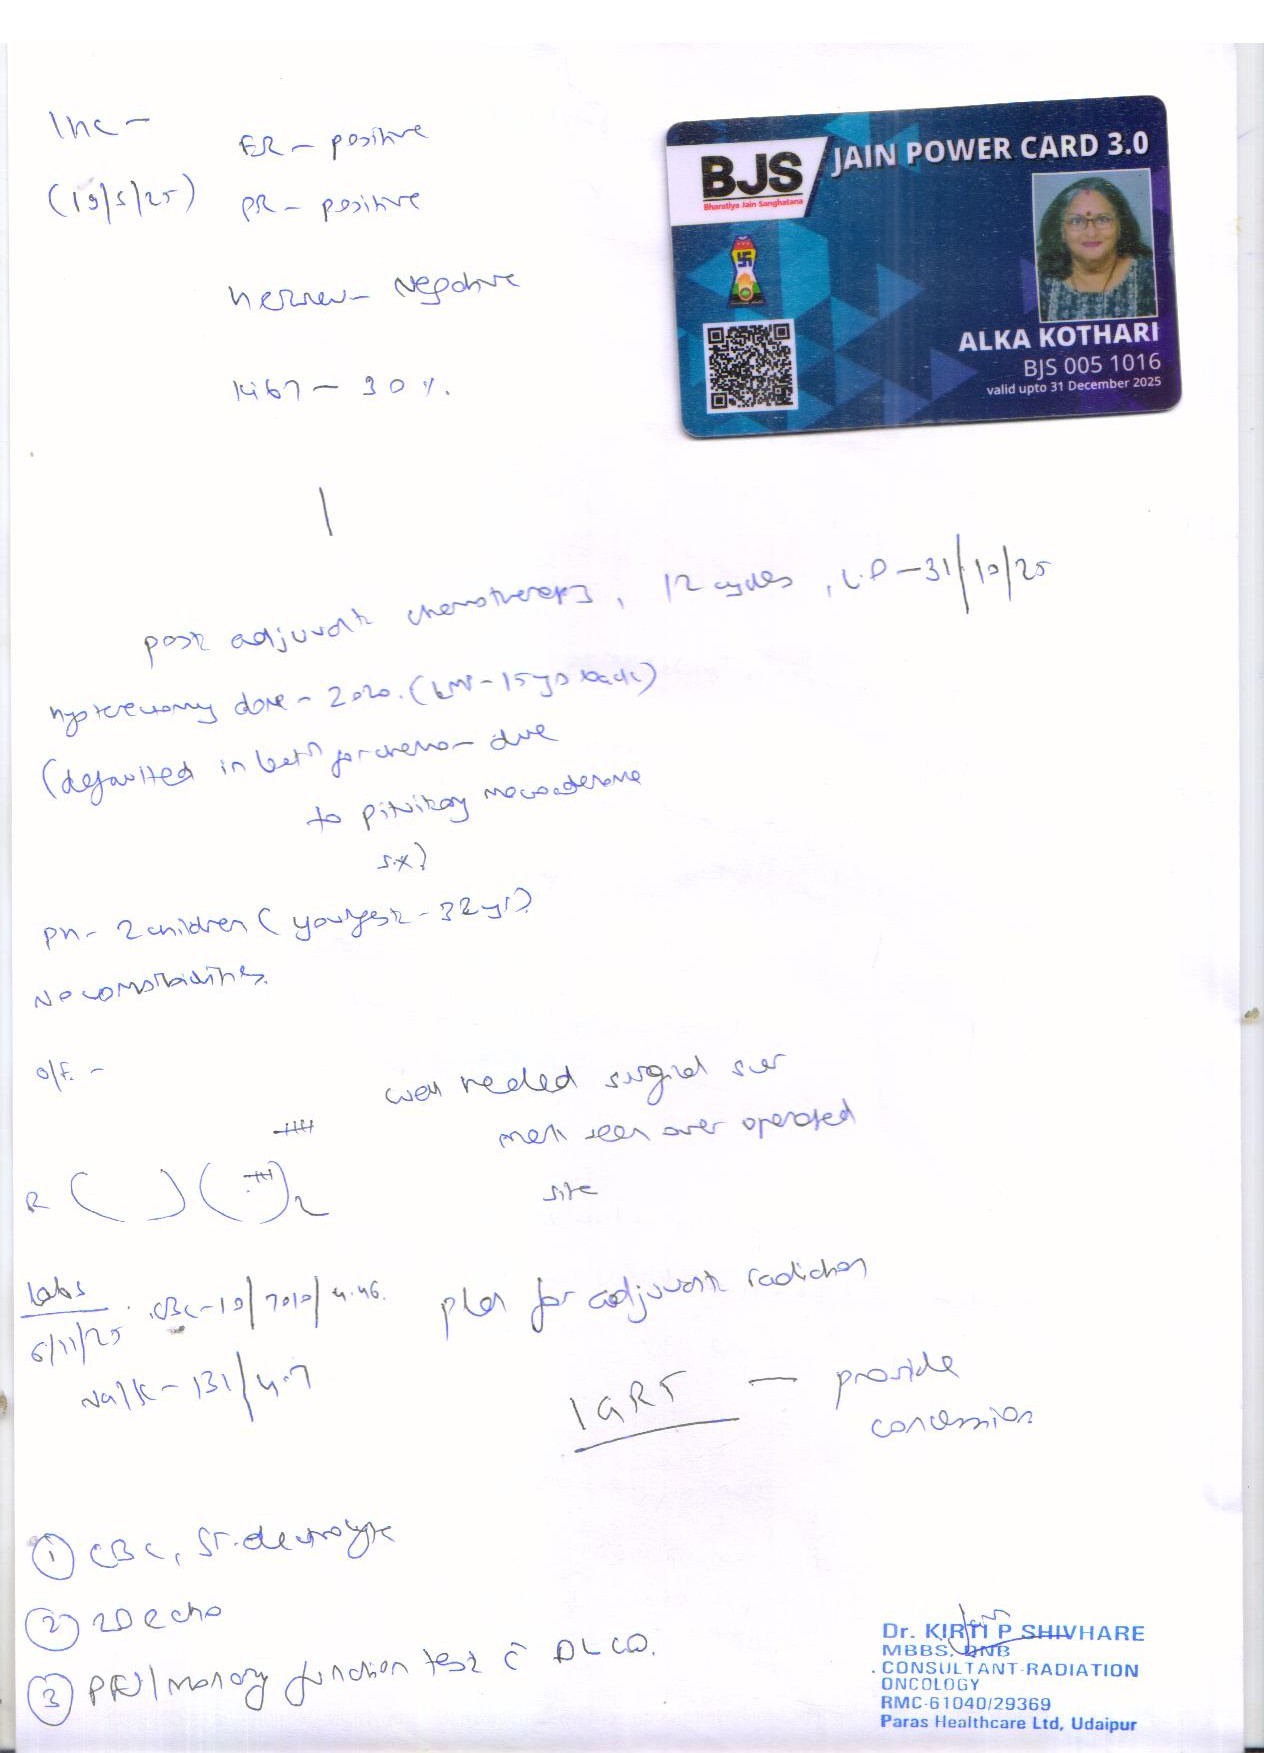 IHC -
(19/5/25)
ER - positive
PR - positive
Negative
Ki67 - 30 %.
BJS
Bharatiya Jain Sanghatana
JAIN POWER CARD 3.0
ALKA KOTHARI
BJS 005 1016
valid upto 31 December 2025
post adjuvant chemotherapy, 12 cycles, L.D - 31/10/25
hysterectomy done - 2020. (LMP - 15 yrs back)
(defaulted in betn for chemo - due
to pituitary macroadenoma
sx)
PH - 2 children (youngest - 32 yrs)
No comorbidities.
O/E -
well healed surgical scar
mark seen over operated
site
R ( ) ( ) L
Labs
6/11/25
CBC - 10/7010/4.46.
Na/K - 131/4.7
plan for adjuvant radiation
IGRT - provide
concession
① CBC, Sr. electrolyte
② 2D echo
③ Pulmonary function test c̄ DLCO.
Dr. KIRTI P SHIVHARE
MBBS, DNB
CONSULTANT-RADIATION
ONCOLOGY
RMC-61040/29369
Paras Healthcare Ltd, Udaipur